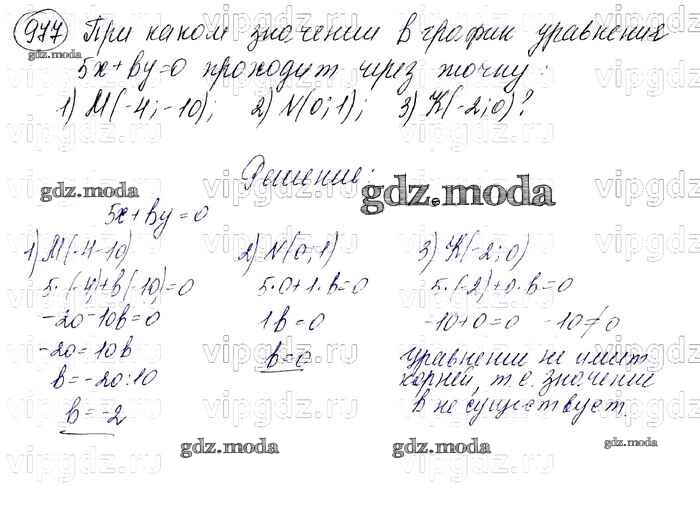 977 При каком значении в график уравнения
5x+вy=0 проходит через точку:
1) M(-4;-10); 2) N(0;1); 3) K(-2;0)?
Решение:
5x+вy=0
1) M(-4-10)
5·(-4)+в(-10)=0
-20-10в=0
-20=10в
в=-20:10
в=-2
2) N(0;1)
5·0+1·в=0
1в=0
в=0
3) K(-2;0)
5·(-2)+0·в=0
-10+0=0 -10≠0
уравнении не имеит
корней, т.е. значении
в не существует.
gdz.moda
gdz.moda
gdz.moda
gdz.moda
gdz.moda
gdz.moda
vipgdz
vipgdz
vipgdz
vipgdz